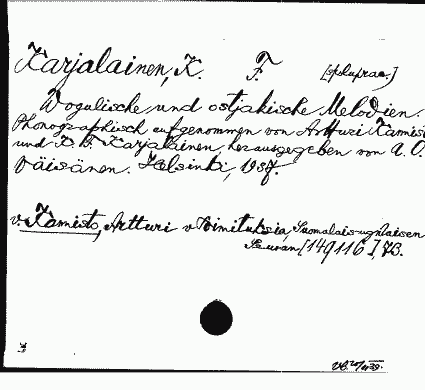 Karjalainen, K. F. [spoluprac.]
Wogulische und ostjakische Melodien.
Phonographisch aufgenommen von Artturi Kannisto
und K. F. Karjalainen, herausgegeben von A. O.
Väisänen. Helsinki, 1937.
v. Kannisto, Artturi v Toimituksia, Suomalais-ugrilaisen
Seuran [149116 I, 73.